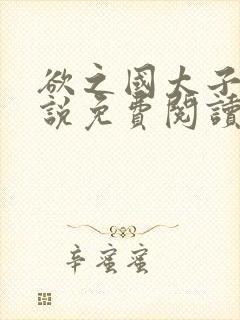 欲之國大子
說免費閱讀
辛蜜蜜